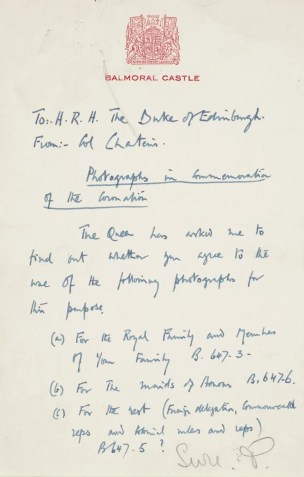 BALMORAL CASTLE
To:- H.R.H. The Duke of Edinburgh.
From:- Col Charteris.
Photographs in Commemoration
of the Coronation
The Queen has asked me to
find out whether you agree to the
use of the following photographs for
this purpose
(a) For the Royal Family and Members
of Your Family B. 647.3-
(b) For The Maids of Honour B.647.6.
(c) For the rest (Foreign delegation, Commonwealth
reps and Colonial rulers and reps)
B 647.5 ?
Sure. P.